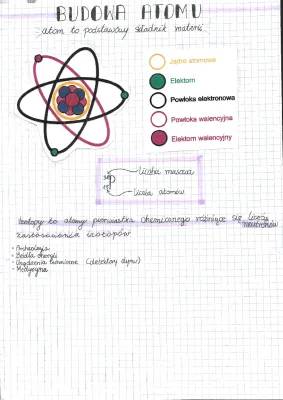 BUDOWA ATOMU
atom to podstawowy składnik materii
Jądro atomowe
Elektorn
Powłoka elektronowa
Powłoka walencyjna
Elektorn walencyjny
liczba masowa
liczba atomów
Izotopy to atomy pierwiastka chemicznego różniące się liczbą
neutronów
zastosowania izotopów
Archeologia
źródła energii
Urządzenia (detektory dymu)
Medycyna